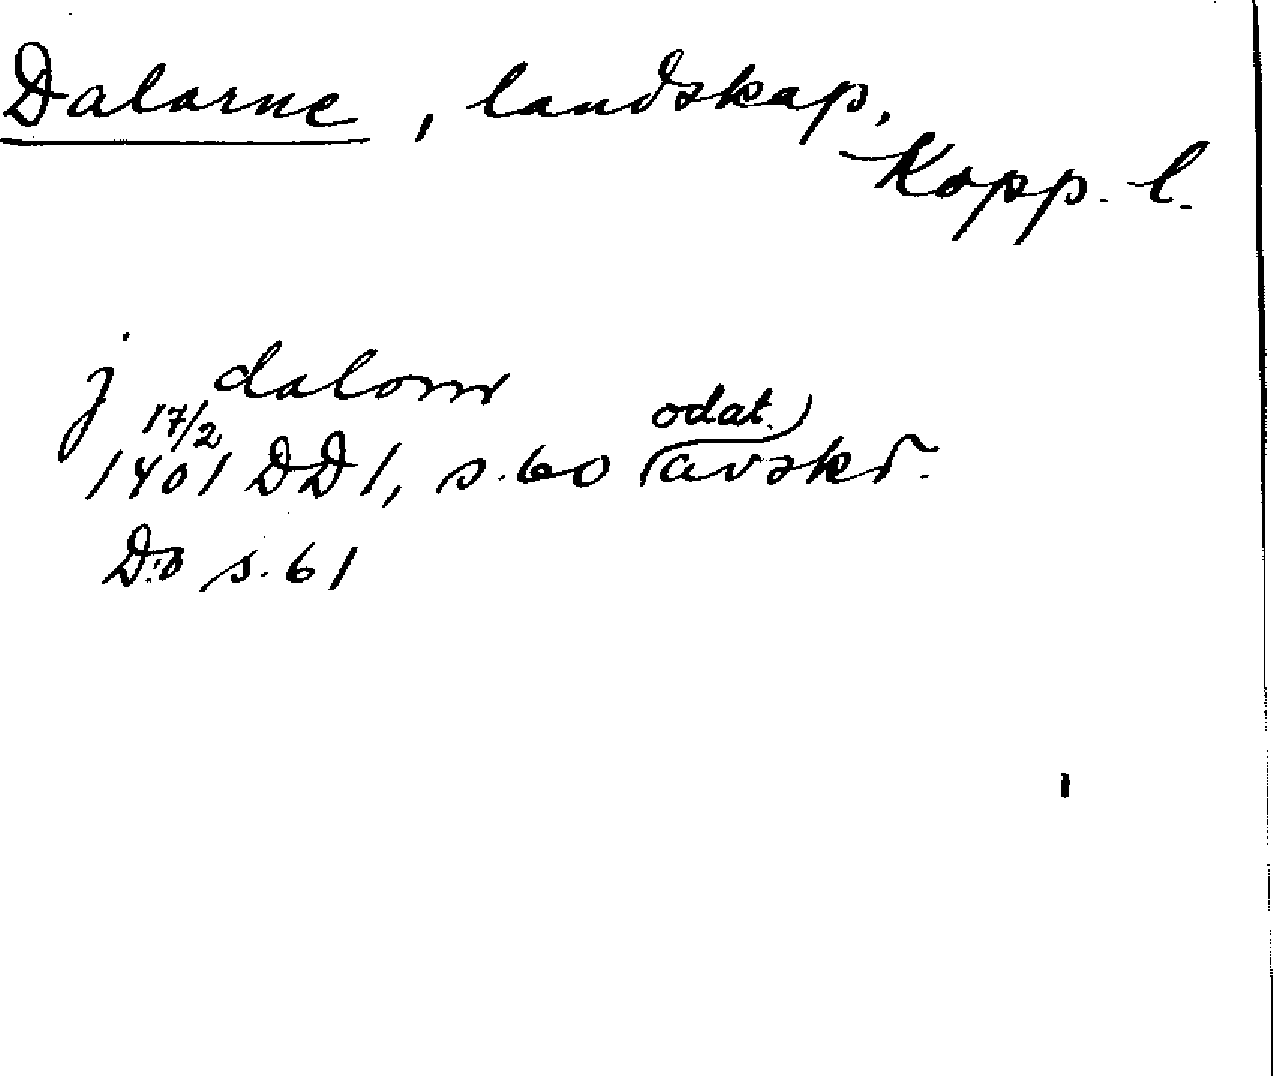 Dalarne, landskap,
Kopp. l.
j dalom
17/2
1401 DD 1, s. 60 (odat.) avskr.
D:o s. 61